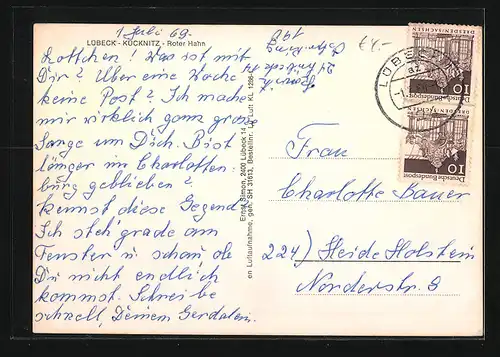 1 Juli 69.
LÜBECK - KÜCKNITZ - Roter Hahn
Lottchen! Was ist mit
Dir? Über eine Woche
keine Post? Ich mache
mir wirklich ganz große
Sange um Dich. Bist
länger im Charlotten-
burg geblieben?
kennst diese Gegend?
Ich steh grade am
Fenster u. schau, ob
Du nicht endlich
kommst. Schreibe
schnell, Deinem
Ernst Simon, 2400 Lübeck 14
en Luftaufnahme, gen. SH 31613, Bestellnr.
LÜBECK
DRESDEN-SACHSEN
10
Deutsche Bundespost
DRESDEN-SACHSEN
10
Deutsche Bundespost
Frau
Charlotte Bauer
224) Heide Holstein
Norderstr. 9